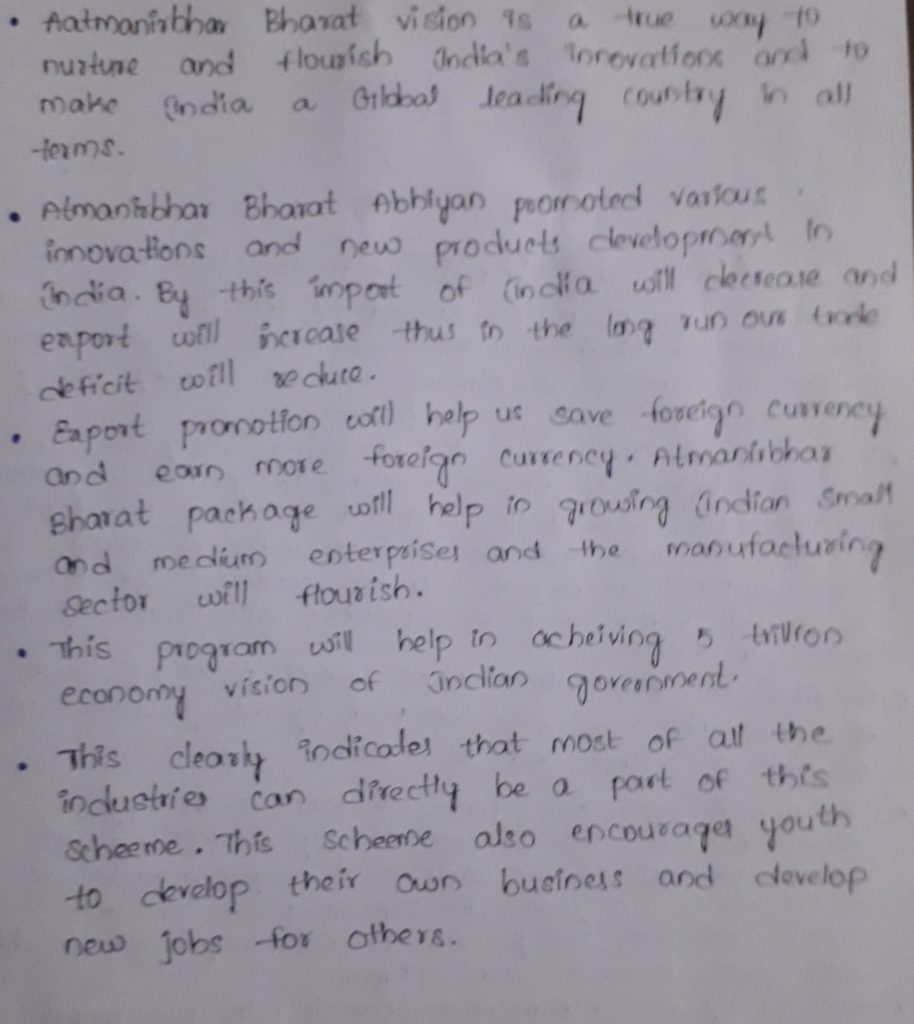 • Aatmanirbhar Bharat vision is a true way to
nurture and flourish India's innovations and to
make India a Global leading country in all
terms.
• Atmanirbhar Bharat Abhiyan promoted various
innovations and new products development in
India. By this import of India will decrease and
export will increase thus in the long run our trade
deficit will reduce.
• Export promotion will help us save foreign currency
and earn more foreign currency. Atmanirbhar
Bharat package will help in growing Indian small
and medium enterprises and the manufacturing
sector will flourish.
• This program will help in acheiving 5 trillion
economy vision of Indian government.
• This clearly indicates that most of all the
industries can directly be a part of this
scheeme. This scheeme also encourages youth
to develop their own business and develop
new jobs for others.